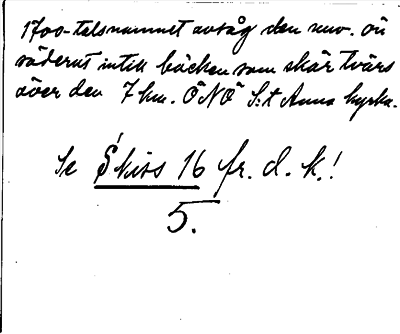 1700-talsnamnet avsåg den nuv. ön
söderut intill bäcken som skär tvärs
över den 7 km. ÖNÖ S:t Anna kyrka.
Se Skirs 16 fr. d. k.!
5.